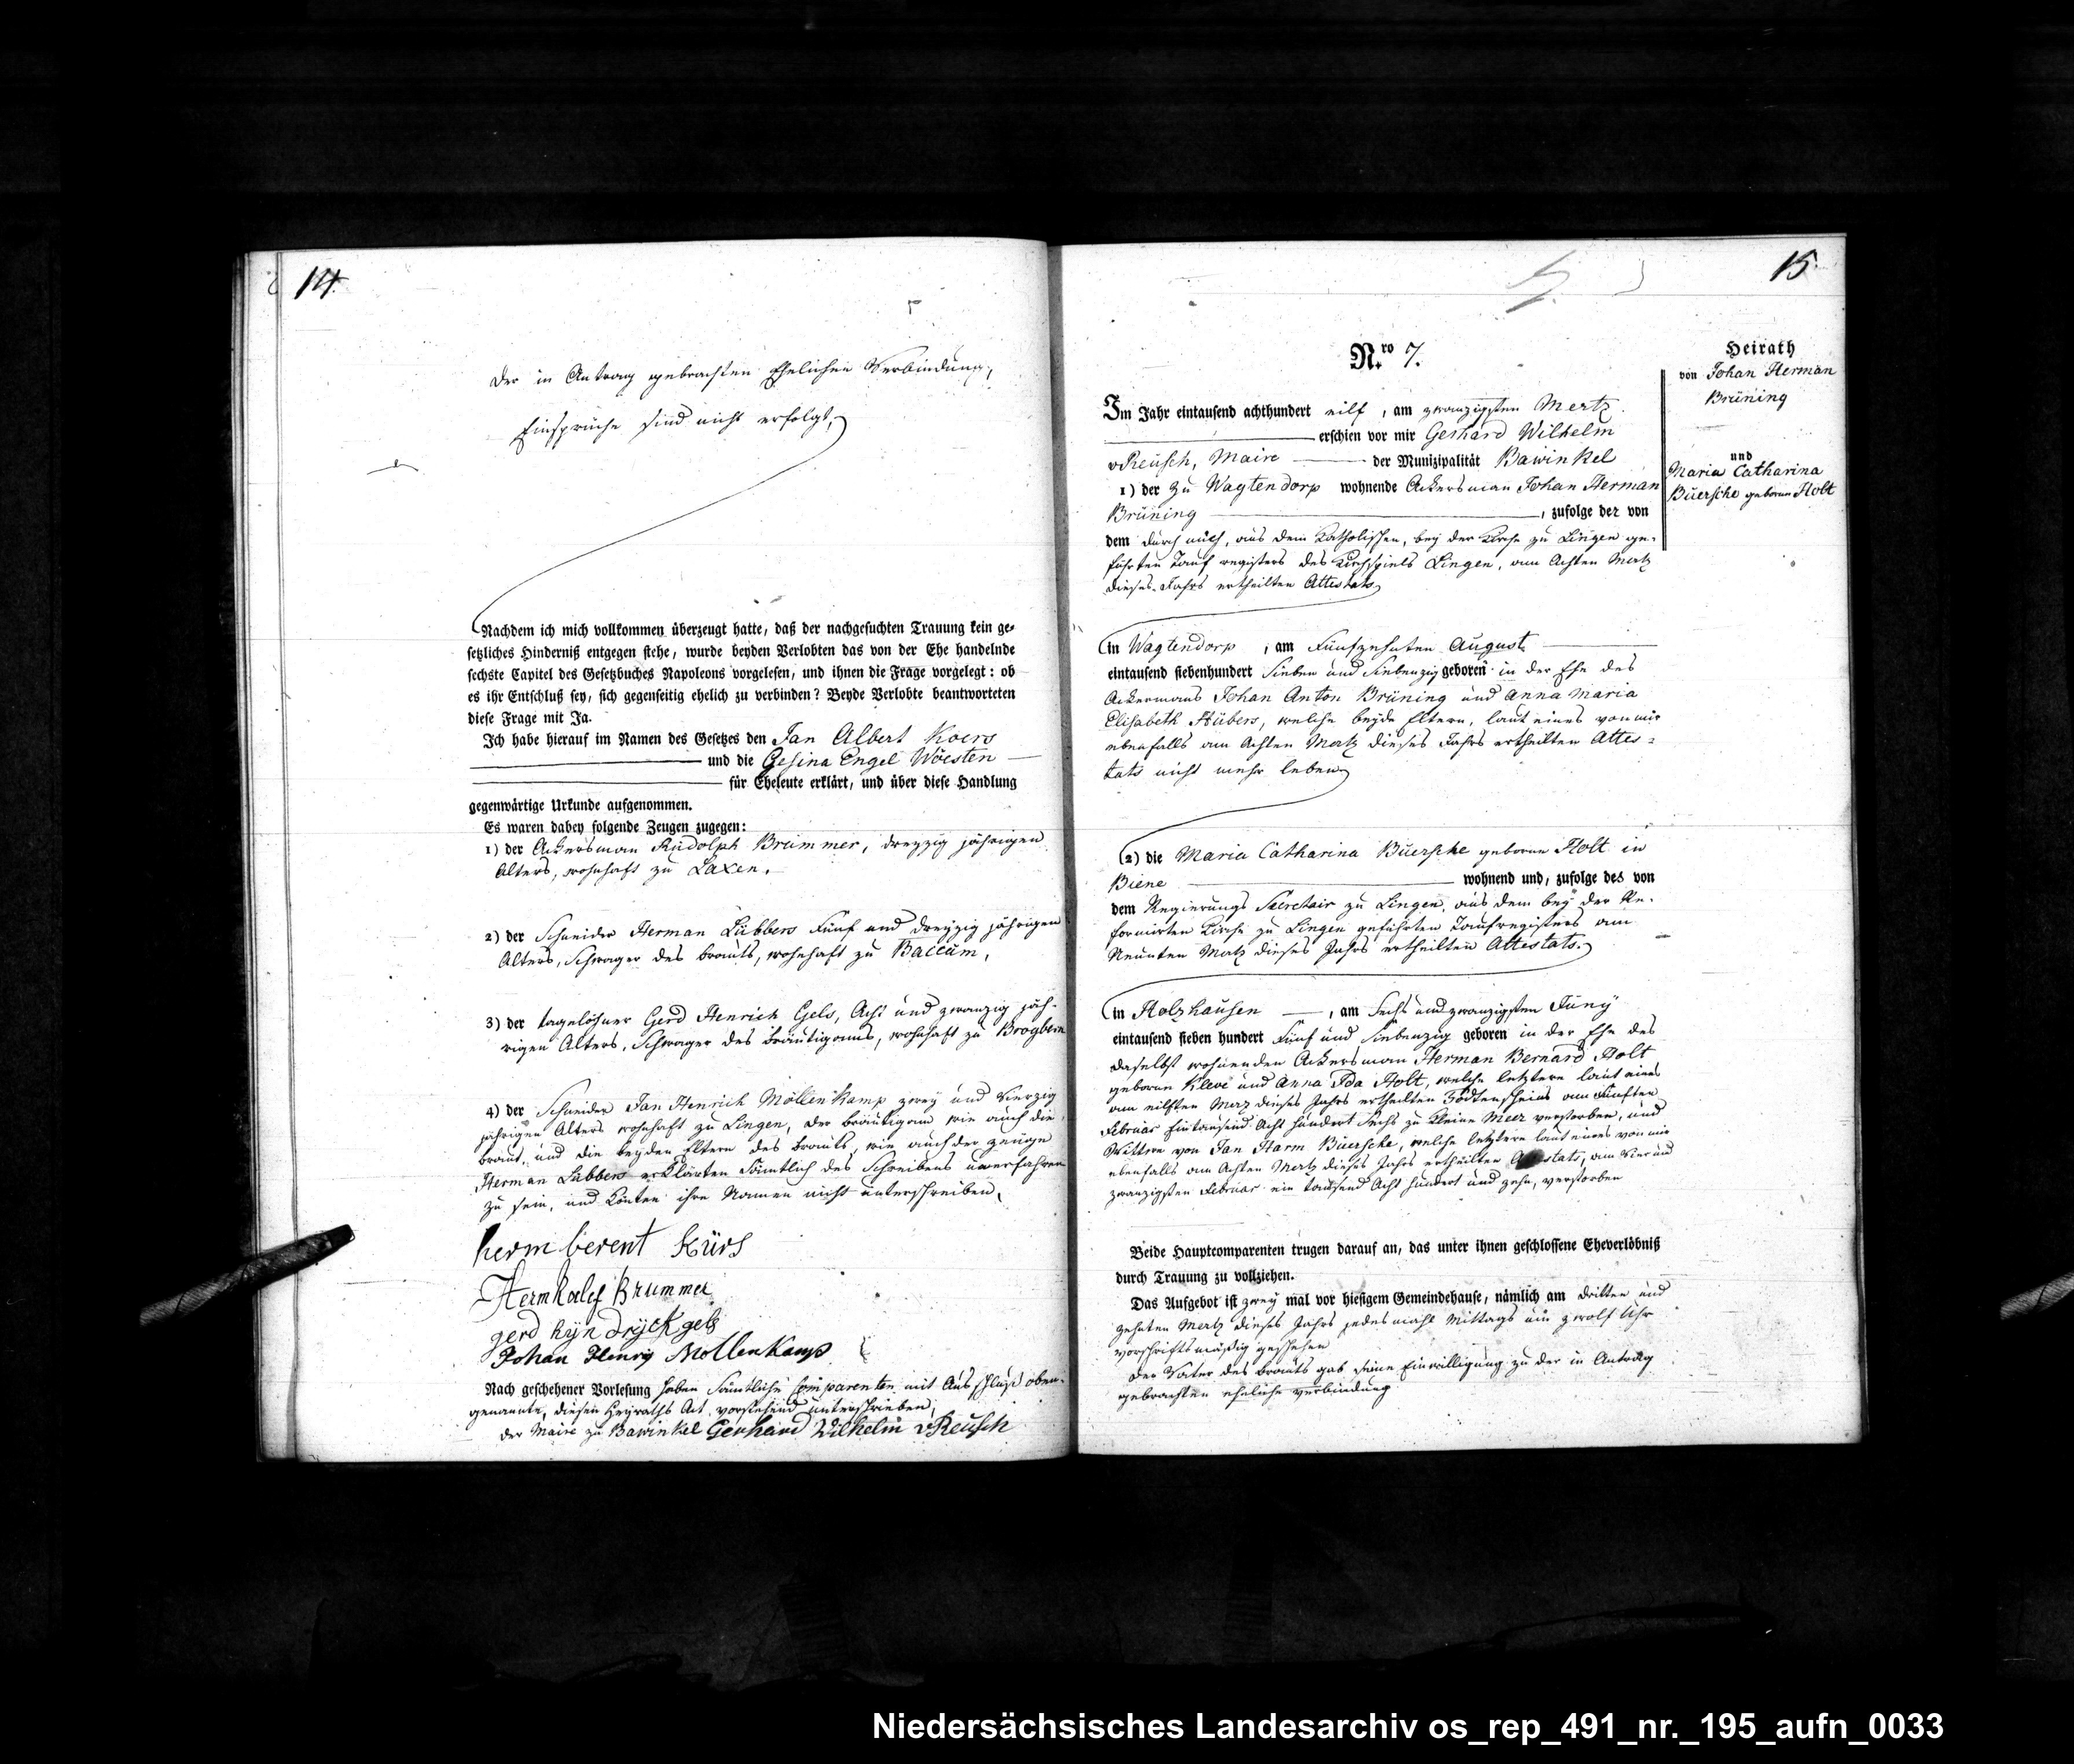 14
der in Antrag gebrachten Ehelichen Verbindung,
Einsprüche sind nicht erfolgt,
Nachdem ich mich vollkommen überzeugt hatte, daß der nachgesuchten Trauung kein ge-
setzliches Hinderniß entgegen stehe, wurde beyden Verlobten das von der Ehe handelnde
sechste Capitel des Gesetzbuches Napoleons vorgelesen, und ihnen die Frage vorgelegt: ob
es ihr Entschluß sey, sich gegenseitig ehelich zu verbinden? Beyde Verlobte beantworteten
diese Frage mit Ja.
Ich habe hierauf im Namen des Gesetzes den Jan Albert Koers
und die Gesina Engel Wöesten
für Eheleute erklärt, und über diese Handlung
gegenwärtige Urkunde aufgenommen.
Es waren dabey folgende Zeugen zugegen:
1) der Ackersman Rudolph Brummer, dreyzig jährigen
Alters, wohnhaft zu Laxen.
2) der Schneider Herman Lübbers Fünf und dreyzig jährigen
Alters, Schwager des brauts, wohnhaft zu Baccum,
3) der tagelöhner Gerd Henrich Gels, Acht und zwanzig jäh-
rigen Alters, Schwager des bräutigams, wohnhaft zu Brogbern
4) der Schneider Jan Henrich Möllenkamp zwey und Vierzig
jährigen Alters wohnhaft zu Lingen, der bräutigam wie auch die
braut, und die beyden Eltern des brauts, wie auch der zeuge
Herman Lübbers erklärten Sämtlich des Schreibens unerfahren
zu sein, und könten ihre Namen nicht unterschreiben,
herm berent Kürs
Herm Rolef Brummer
gerd hyn dryck gels
Johan Henrig Mollenkamp
Nach geschehener Vorlesung haben Sämtliche Comparenten mit Ausschluß oben-
genannte, diesen Heyraths Act vorstehend unterschrieben,
der Maire zu Bawinkel Gerhard Wilhelm vReusch
15
Nro 7.
Heirath
von Johan Herman
Brüning
und
Maria Catharina
Büersche geborne Holt
Im Jahr eintausend achthundert eilf, am zwanzigsten Mertz
erschien vor mir Gerhard Wilhelm
vReusch, Maire der Munizipalität Bawinkel
1) der zu Wagtendorp wohnende Ackersman Johan Herman
Brüning, zufolge der von
dem durch mich, aus dem Katholischen, bey der Kirche zu Lingen ge-
führten Tauf registers des Kirchspiels Lingen, am Achten Mertz
dieses Jahrs ertheilten Attestats
in Wagtendorp, am Fünfzehnten August
eintausend siebenhundert Sieben und Siebenzig geboren in der Ehe des
Ackermans Johan Anton Brüning und Anna Maria
Elisabeth Hübers, welche beyde Eltern, laut eines von mir
ebenfalls am Achten Mertz dieses Jahrs ertheilten Attes-
tats nicht mehr leben
2) die Maria Catharina Büersche geborne Holt in
Biene wohnend und, zufolge des von
dem Regierungs Secretair zu Lingen, aus dem bey der Re-
formirten Kirche zu Lingen geführten Taufregisters am
Neunten Mertz dieses Jahrs ertheilten Attestats.
in Holzhausen, am Sechs und zwanzigsten Juny
eintausend sieben hundert Fünf und Siebenzig geboren in der Ehe des
daselbst wohnenden Ackersman Herman Bernard Holt
geborne Kleve und Anna Ida Holt, welche letztere laut eines
am eilften Merz dieses Jahrs ertheilten Todtenscheins am Fünften
Februar Eintausend Acht hundert Sechs zu Kleine Meer verstorben, und
Wittwe von Jan Harm Büersche, welche letztere laut eines von mir
ebenfalls am Achten Mertz dieses Jahrs ertheilten Attestats, am Vier und
zwanzigsten Februar ein tausend Acht hundert und zehn, verstorben
Beide Hauptcomparenten trugen darauf an, das unter ihnen geschlossene Eheverlöbniß
durch Trauung zu vollziehen.
Das Aufgebot ist zwey mal vor hiesigem Gemeindehause, nämlich am dritten und
zehnten Mertz dieses Jahrs jedes mahl Mittags um zwolf Uhr
vorschriftsmäßig geschehen
der Vater des brauts gab seine Einwilligung zu der in Antrag
gebrachten eheliche verbindung
Niedersächsisches Landesarchiv os_rep_491_nr._195_aufn_0033